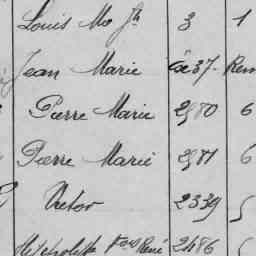 Louis M 3 1
Jean Marie 37 Ren
Pierre Marie 2980 6
Pierre Marie 2981 6
Victor 2339
Hippolyte René 2486